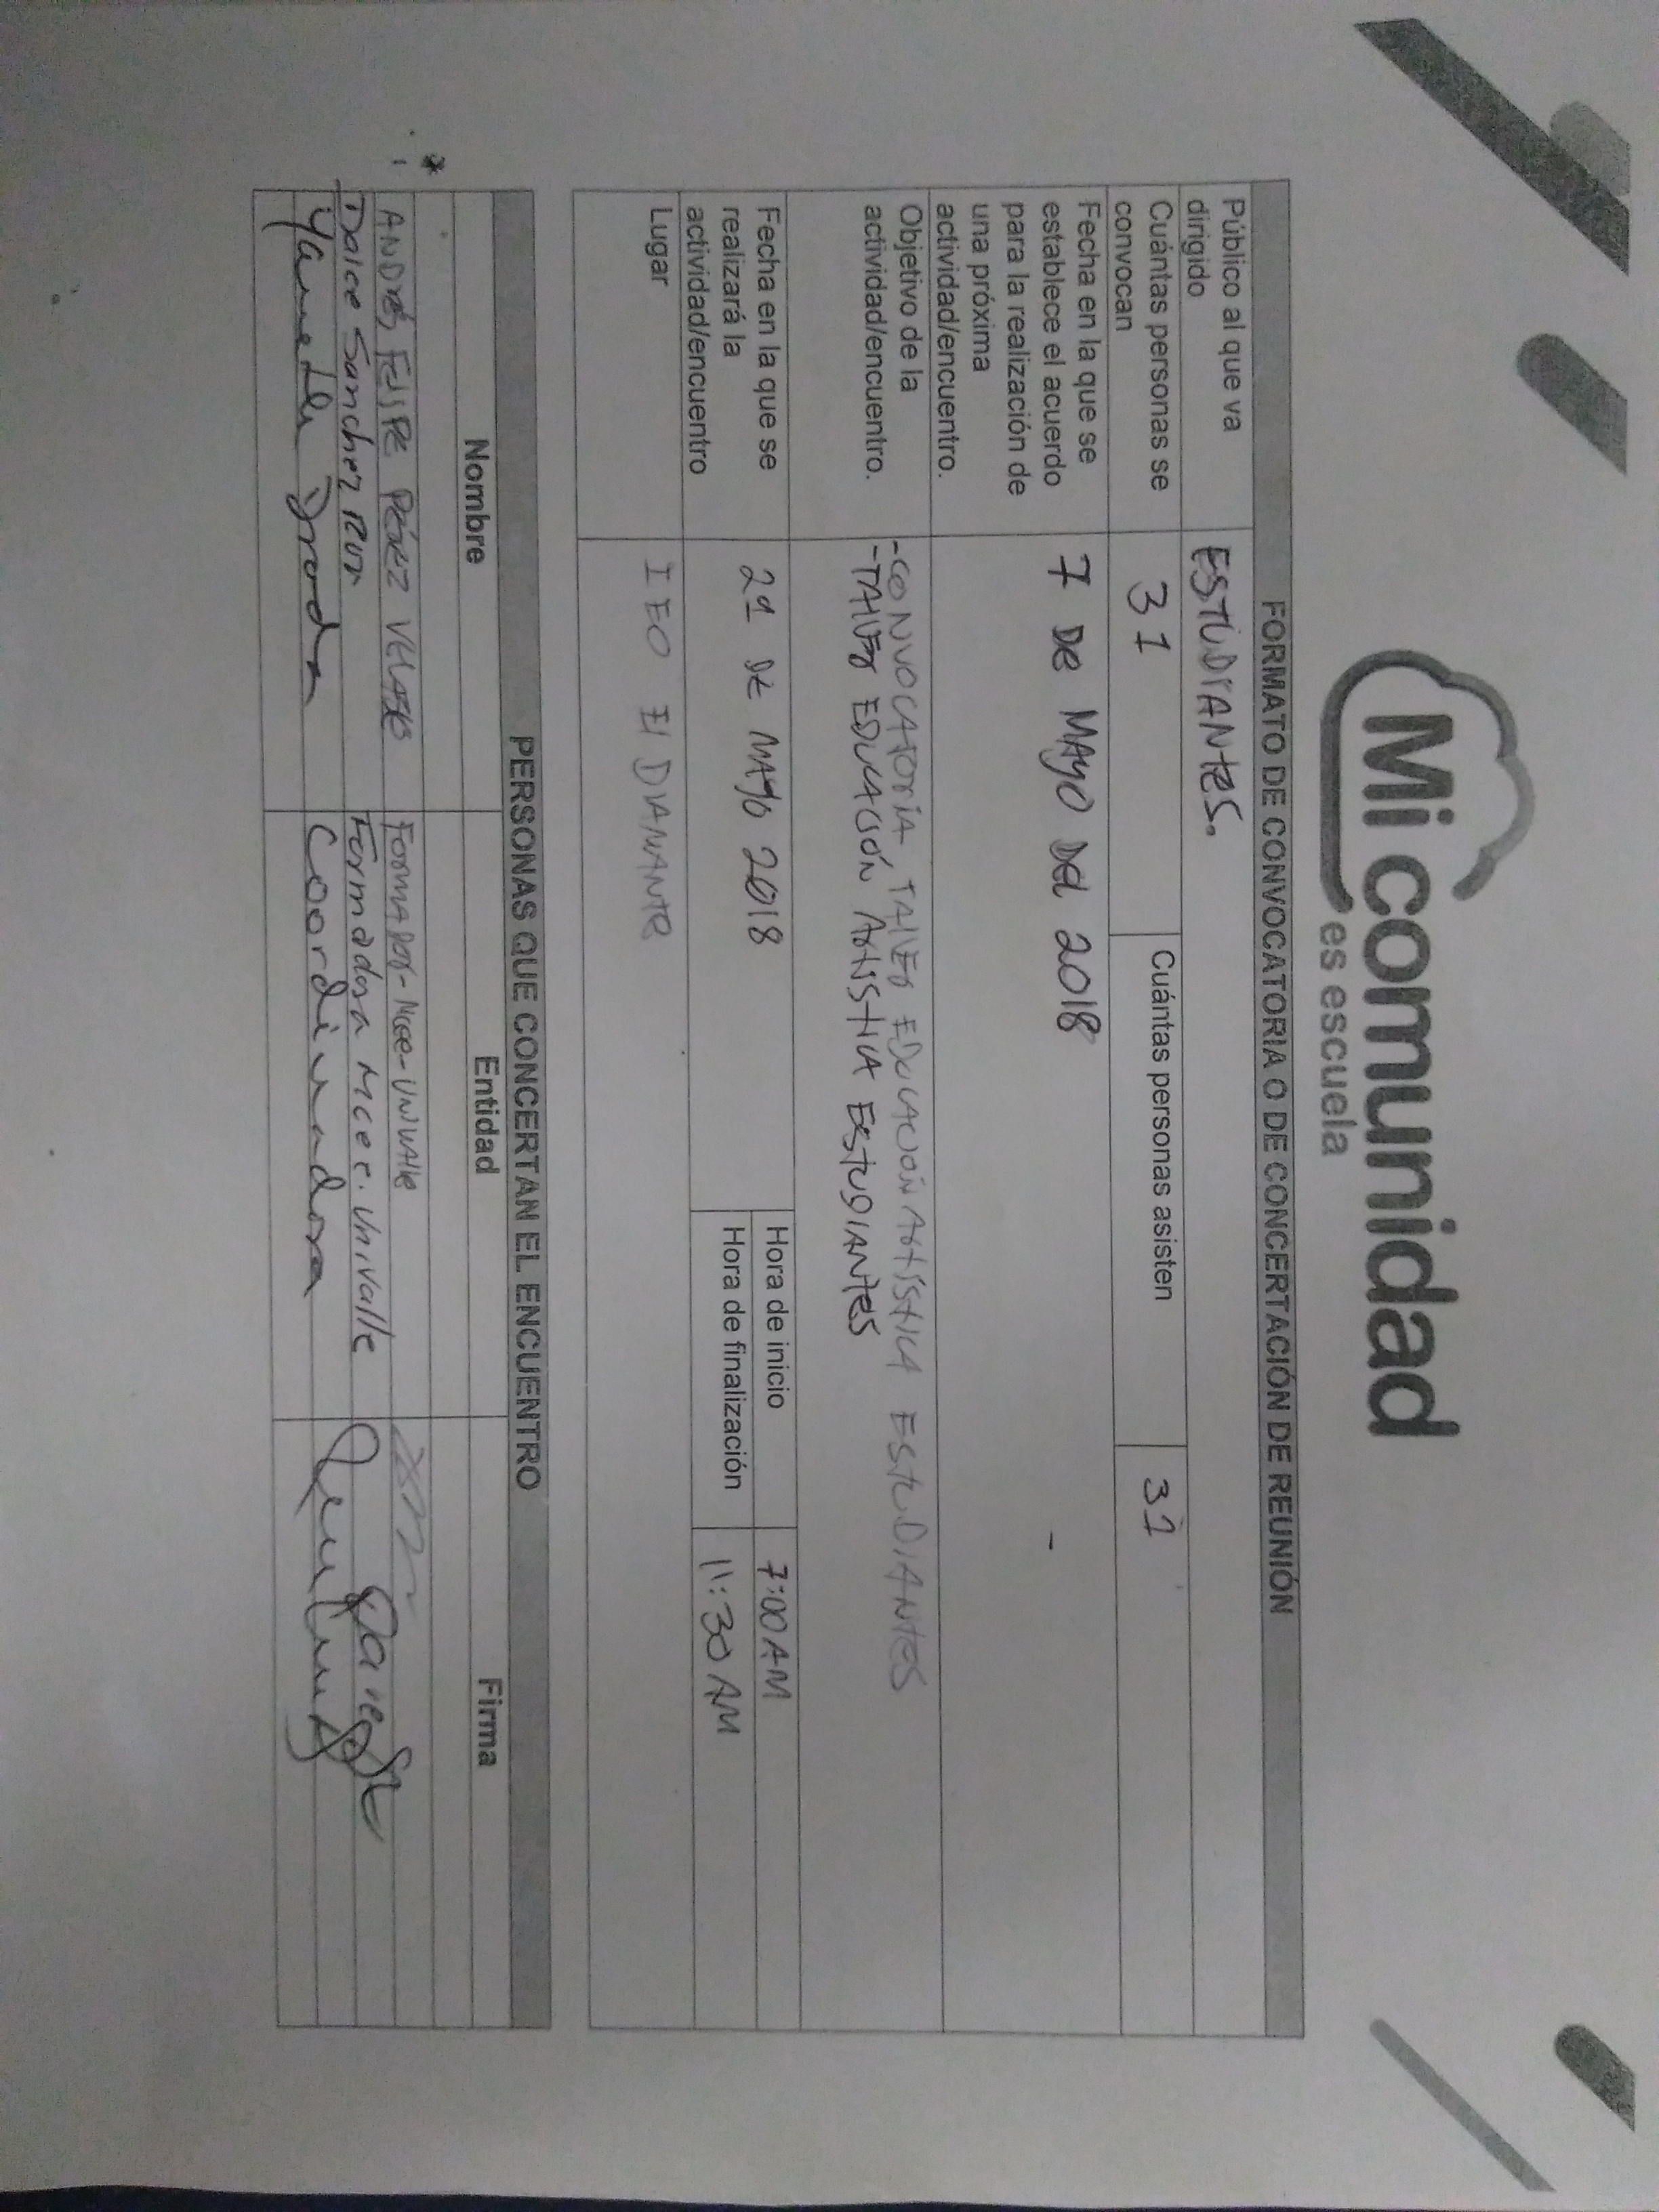 Mi comunidad
es escuela
FORMATO DE CONVOCATORIA O DE CONCERTACIÓN DE REUNIÓN
Público al que va
dirigido
ESTUDIANTES.
Cuántas personas se
convocan
31
Cuántas personas asisten
31
Fecha en la que se
establece el acuerdo
para la realización de
una próxima
actividad/encuentro.
7 DE MAYO DEL 2018
Objetivo de la
actividad/encuentro.
-CONVOCATORIA TALLER EDUCACIÓN ARTÍSTICA ESTUDIANTES
-TALLER EDUCACIÓN ARTISTICA ESTUDIANTES
Fecha en la que se
realizará la
actividad/encuentro
DE MAYO 2018
Hora de inicio
7:00 AM
Hora de finalización
11:30 AM
Lugar
IEO El DIAMANTE
PERSONAS QUE CONCERTAN EL ENCUENTRO
Nombre Entidad Firma
ANDRÉS FELIPE PÉREZ FORMADOR-MCEE-UNIVALLE
Sanchez Formadora Mcee. Univalle
Yaneth Coordinadora